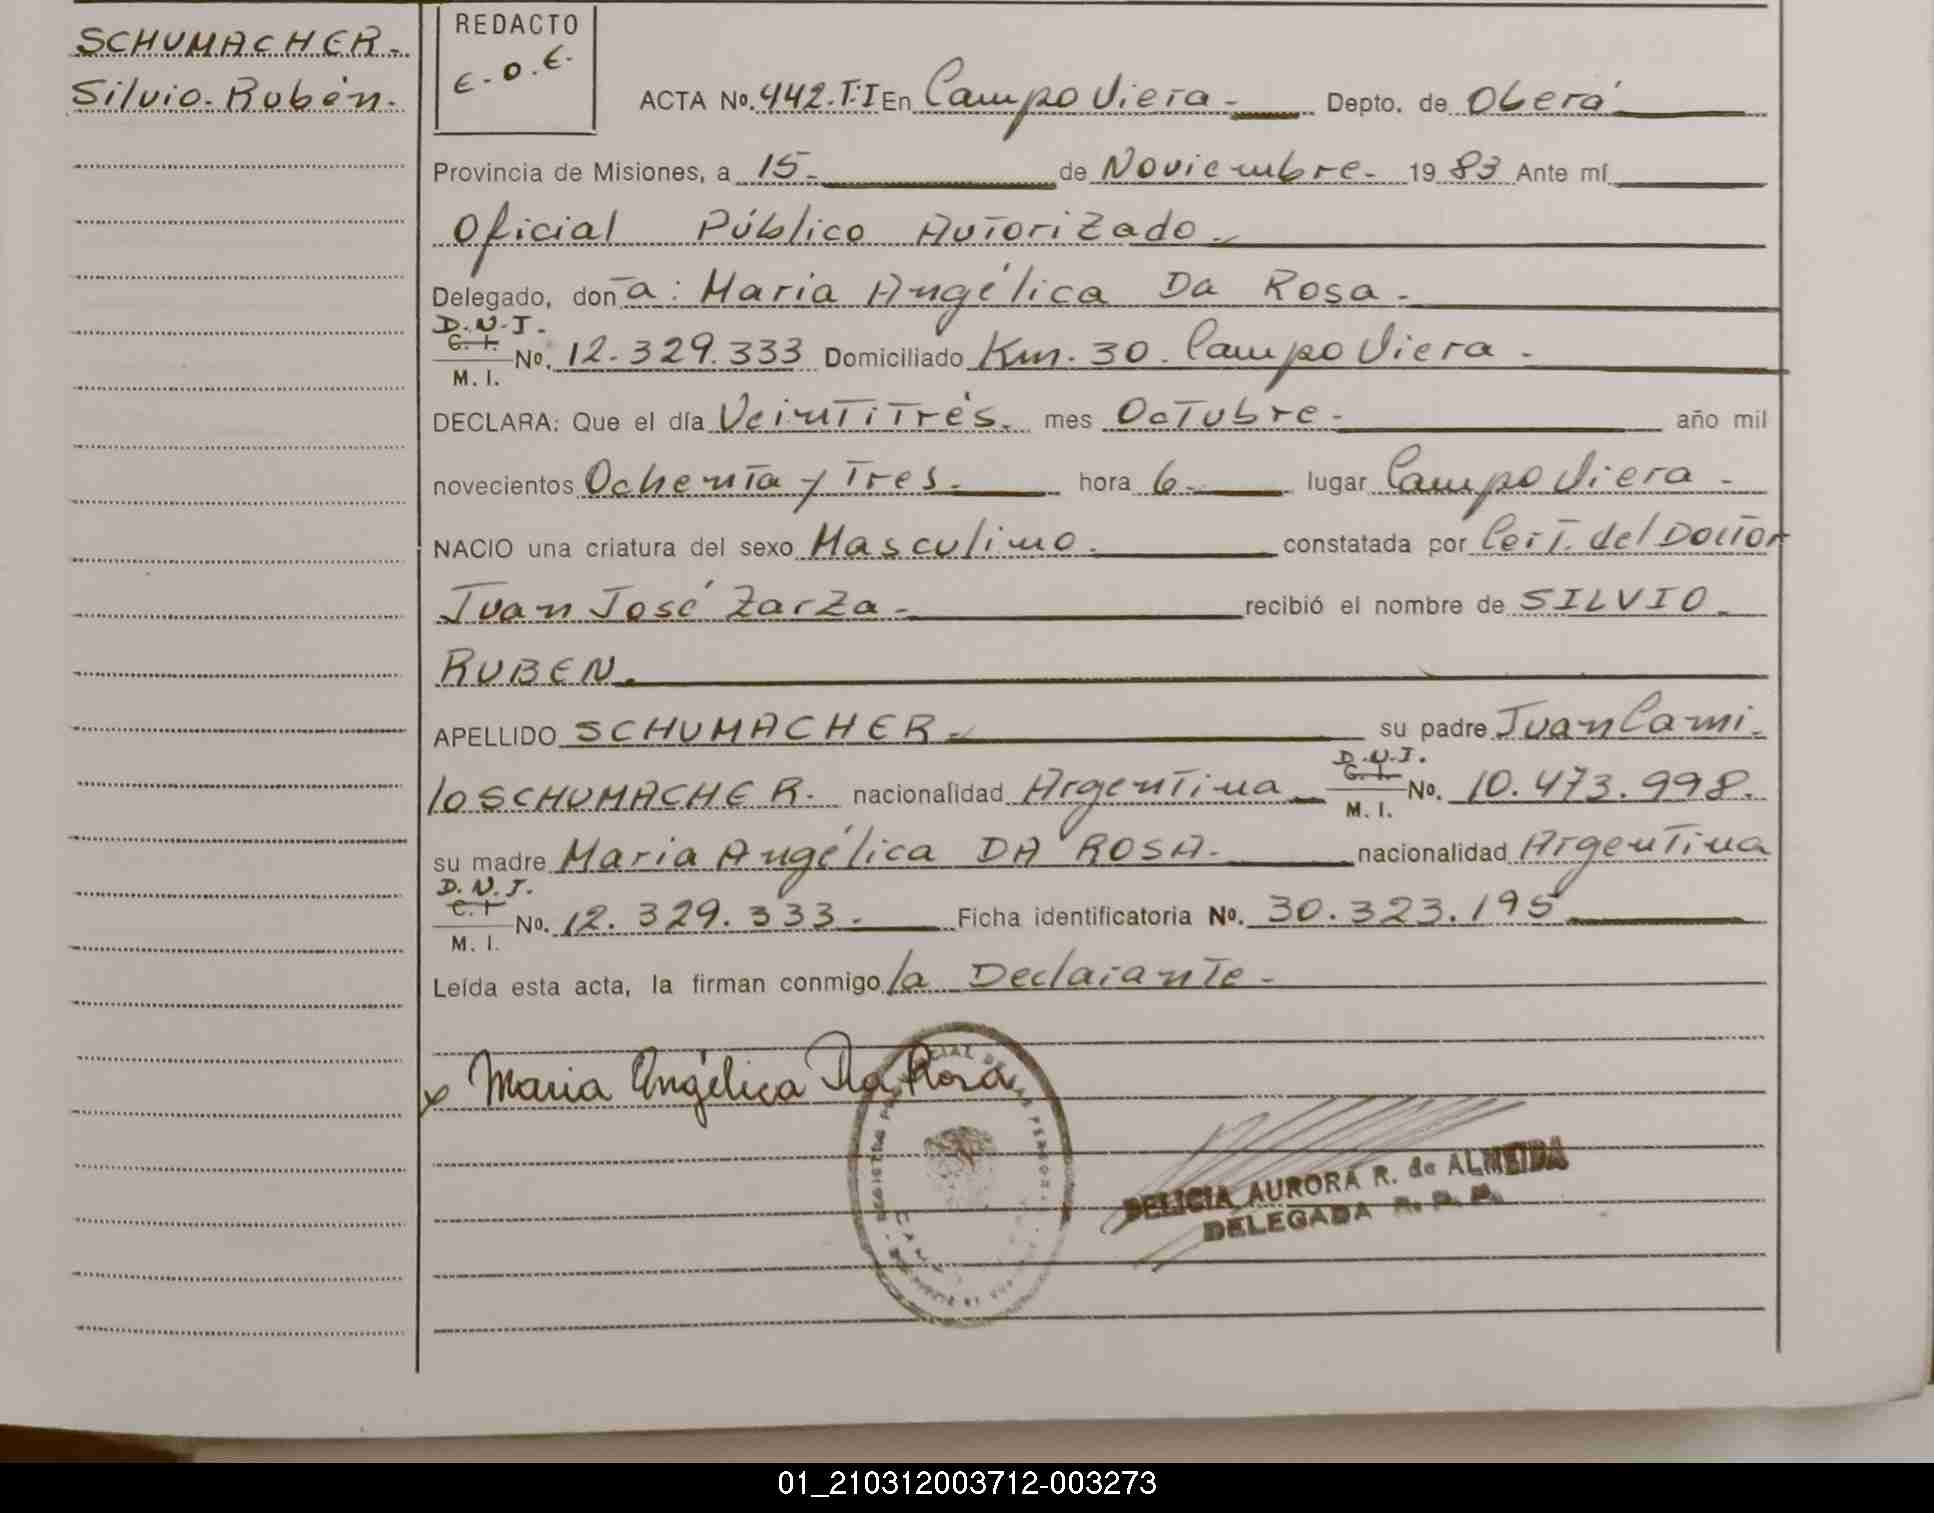 SCHUMACHER.
Silvio. Rubén.
REDACTO
E.O.E.
ACTA No. 442.T.I En Campo Viera. Depto. de Oberá
Provincia de Misiones, a 15. de Noviembre. 1983 Ante mí
Oficial Público Autorizado.
Delegado, doña: Maria Angélica Da Rosa.
D.N.I.
C. I.
M. I. No. 12.329.333 Domiciliado Km. 30. Campo Viera.
DECLARA: Que el día Veintitrés. mes Octubre. año mil
novecientos Ochenta y Tres. hora 6. lugar Campo Viera.
NACIO una criatura del sexo Masculino. constatada por Cert. del Doctor
Juan José Zarza. recibió el nombre de SILVIO.
RUBEN.
APELLIDO SCHUMACHER. su padre Juan Cami.
lo SCHUMACHER. nacionalidad Argentina D.N.I. C. I. M. I. No. 10.473.998.
su madre Maria Angélica DA ROSA. nacionalidad Argentina
D.N.I.
C. I.
M. I. No. 12.329.333. Ficha identificatoria No. 30.323.195
Leída esta acta, la firman conmigo la Declarante.
x Maria Angélica Da Rosa
DELICIA AURORA R. de ALMEIDA
DELEGADA R. P. P.
01_210312003712-003273